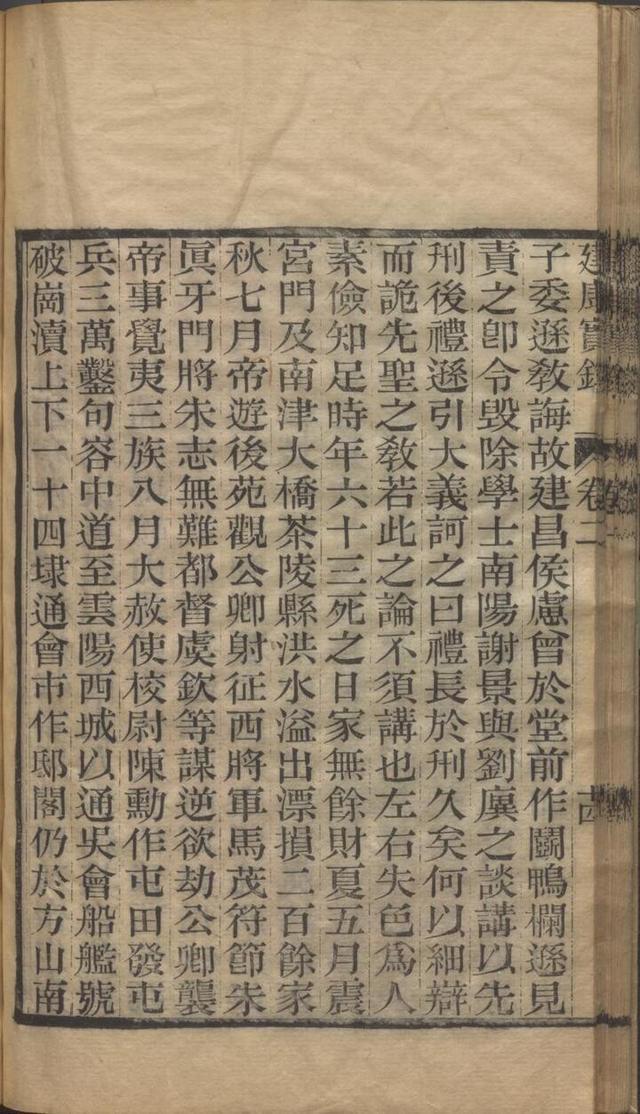 建康實錄 卷二 十四
子委遜敎誨故建昌侯慮曾於堂前作鬬鴨欄遜見
責之卽令毀除學士南陽謝景與劉廙之談講以先
刑後禮遜引大義訶之曰禮長於刑久矣何以細辯
而詭先聖之敎若此之論不須講也左右失色爲人
素儉知足時年六十三死之日家無餘財夏五月震
宮門及南津大橋茶陵縣洪水溢出漂損二百餘家
秋七月帝遊後苑觀公卿射征西將軍馬茂符節朱
眞牙門將朱志無難都督虞欽等謀逆欲劫公卿襲
帝事覺夷三族八月大赦使校尉陳勳作屯田發屯
兵三萬鑿句容中道至雲陽西城以通吳會船艦號
破崗瀆上下一十四埭通會市作邸閣仍於方山南